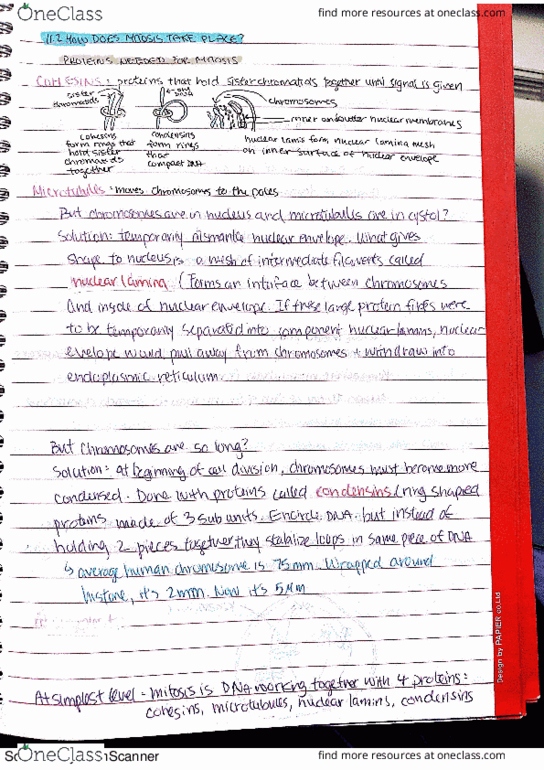 OneClass find more resources at oneclass.com
11.2 HOW DOES MITOSIS TAKE PLACE?
PROTEINS NEEDED FOR MITOSIS
COHESINS: proteins that hold sister chromatids together until signal is given
sister chromatids
chromosomes
inner and outer nuclear membranes
cohesins form rings that hold sister chromatids together
condensins form rings that compact DNA
nuclear lamins form nuclear lamina mesh on inner surface of nuclear envelope
Microtubules: moves chromosomes to the poles
But chromosomes are in nucleus and microtubules are in cystol?
Solution: temporarily dismantle nuclear envelope. What gives
shape to nucleus is a mesh of intermediate filaments called
nuclear lamina (Forms an interface between chromosomes
and inside of nuclear envelope. If these large protein fibres were
to be temporarily separated into component nuclear lamins, nuclear
envelope would pull away from chromosomes + withdraw into
endoplasmic reticulum
But chromosomes are so long?
Solution: at beginning of cell division, chromosomes must become more
condensed. Done with proteins called condensins (ring shaped
proteins made of 3 subunits. Encircle DNA but instead of
holding 2 pieces together, they stabilize loops in same piece of DNA
↳ average human chromosome is 75mm. Wrapped around
histone, it's 2mm. Now it's 5Mm
At simplest level - mitosis is DNA working together with 4 proteins:
cohesins, microtubules, nuclear lamins, condensins
Design by PAPIER co.Ltd
OneClass Scanner find more resources at oneclass.com